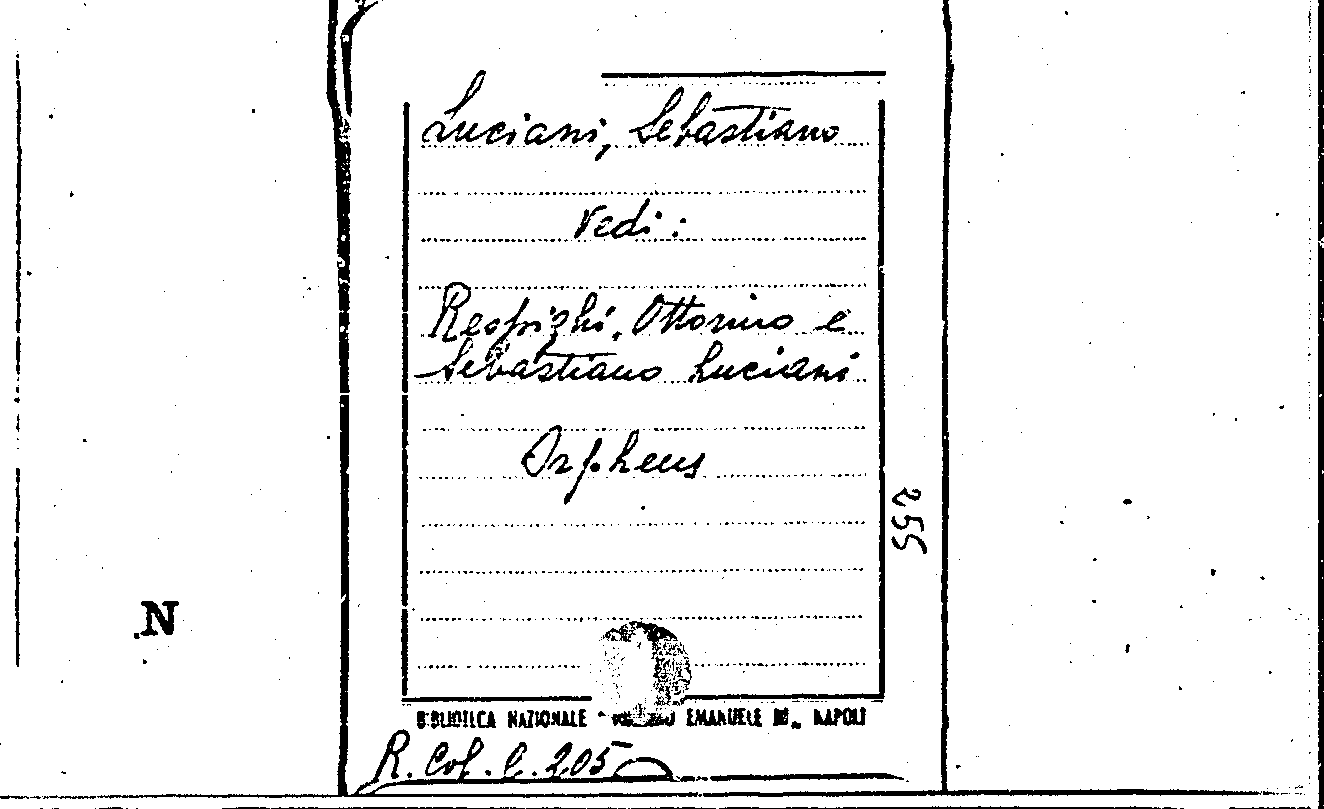 Luciani, Sebastiano
Vedi:
Respighi, Ottorino e
Sebastiano Luciani
Orpheus
255
N
BIBLIOTECA NAZIONALE " EMANUELE III„ NAPOLI
R. Cof. C. 205